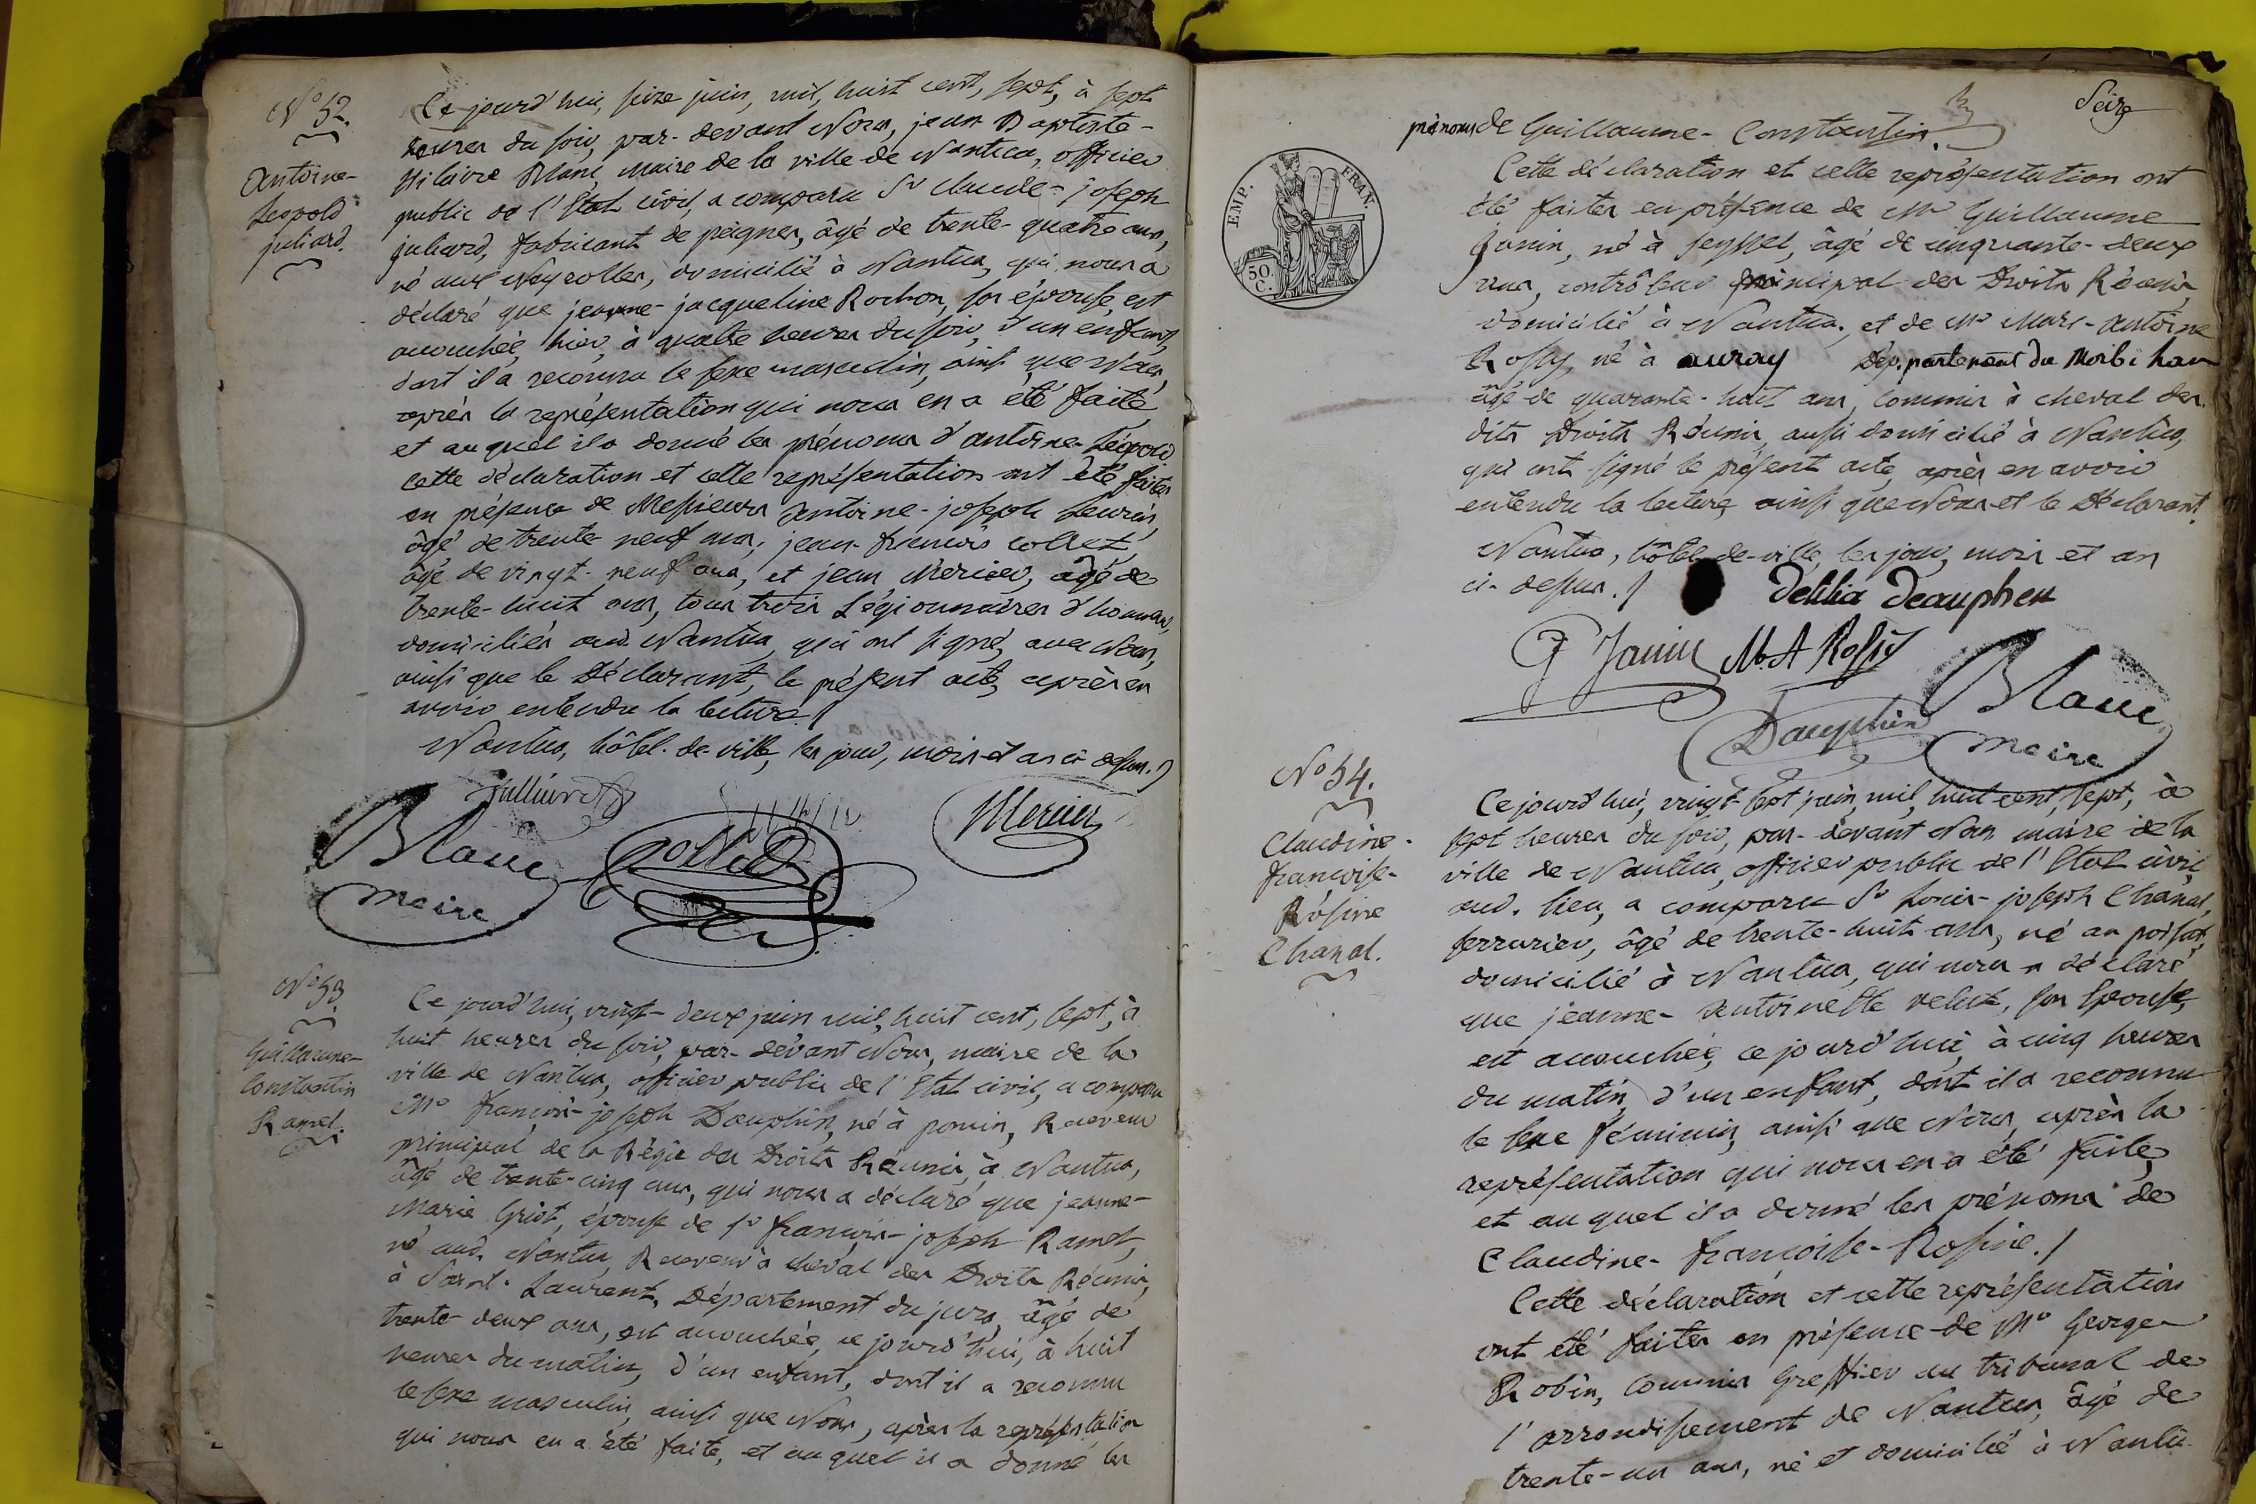 N° 52.
Antoine-
Leopold
juliard.
Ce jourd'hui, seize juin, mil, huit cent, sept, à sept
heures du soir, par-devant Nous, jean Baptiste-
hilaire Blanc, Maire de la ville de Nantua, officier
public de l'Etat civil, a comparu Sr Claude-joseph
juliard, fabricant de peignes, âgé de trente-quatre ans,
né aux Neyrolles, domicilié à Nantua, qui nous a
déclaré que jeanne-jacqueline Rochon, son épouse, est
accouchée, hier, à quatre heures du soir, d'un enfant,
dont il a reconnu le sexe masculin, ainsi que Nous,
après la représentation qui nous en a été faite,
et auquel il a donné les prénoms d'antoine-Léopold
Cette déclaration et cette représentation ont été faites
en présence de Messieurs Antoine-joseph
âgé de trente-neuf ans, jean-françois Collet,
âgé de vingt-neuf ans, et jean Mercier, âgé de
trente-huit ans, tous trois Légionnaires d'honneur,
domiciliés aud. Nantua, qui ont signé, avec Nous,
ainsi que le Déclarant, le présent acte, après en
avoir entendu la lecture./
Nantua, hôtel-de-ville, les jour, mois et an ci-dessus./
Julliard
Blanc Collet Mercier
maire
N° 53.
Guillaume-
Constantin
Ramel.
Ce jourd'hui, vingt-deux juin mil, huit cent, sept, à
huit heures du soir, par-devant Nous, maire de la
ville de Nantua, officier public de l'Etat civil, a comparu
Mr françois-joseph Dauphin, né à poncin, Receveur
principal de la Régie des Droits Réunis, à Nantua,
âgé de trente-cinq ans, qui nous a déclaré que jeanne-
Marie Griot, épouse de Sr françois-joseph Ramel,
né aud. Nantua, Receveur à cheval des Droits Réunis,
à Saint-Laurent, Département du jura, âgé de
trente-deux ans, est accouchée, ce jourd'hui, à huit
heures du matin, d'un enfant, dont il a reconnu
le sexe masculin, ainsi que Nous, après la représentation
qui nous en a été faite, et auquel il a donné les
Seize
prénoms de Guillaume-Constantin.
TEMP. FRAN.
50.
C.
Cette déclaration et cette représentation ont
été faites en présence de Mr Guillaume
Janin, né à seyssel, âgé de cinquante-deux
ans, contrôleur principal des Droits Réunis,
domicilié à Nantua, et de Mr Marc-Antoine
Rossy, né à auray Département du Morbihan
âgé de quarante-huit ans, commis à cheval des
dits Droits Réunis, aussi domicilié à Nantua,
qui ont signé le présent acte, après en avoir
entendu la lecture, ainsi que Nous et le Déclarant.
Nantua, hôtel-de-ville, les jour, mois et an
ci-dessus./
G Janin M.A Rossy
Dauphin Blanc
maire
N° 54.
Claudine-
françoise-
Rosine
Chanal.
Ce jourd'hui, vingt-sept juin, mil, huit cent, sept, à
sept heures du soir, par-devant Nous maire de la
ville de Nantua, officier public de l'Etat civil,
aud. lieu, a comparu Sr Louis-joseph Chanal,
serrurier, âgé de trente-huit ans, né au poisat,
domicilié à Nantua, qui nous a déclaré
que jeanne-Antoinette velut, son Epouse,
est accouchée, ce jourd'hui, à cinq heures
du matin, d'un enfant, dont il a reconnu
le sexe féminin, ainsi que Nous, après la
représentation qui nous en a été faite,
et auquel il a donné les prénoms de
Claudine-françoise-Rosine./
Cette déclaration et cette représentation
ont été faites en présence de Mr George
Robin, Commis Greffier au tribunal de
l'arrondissement de Nantua, âgé de
trente-un ans, né et domicilié à Nantua